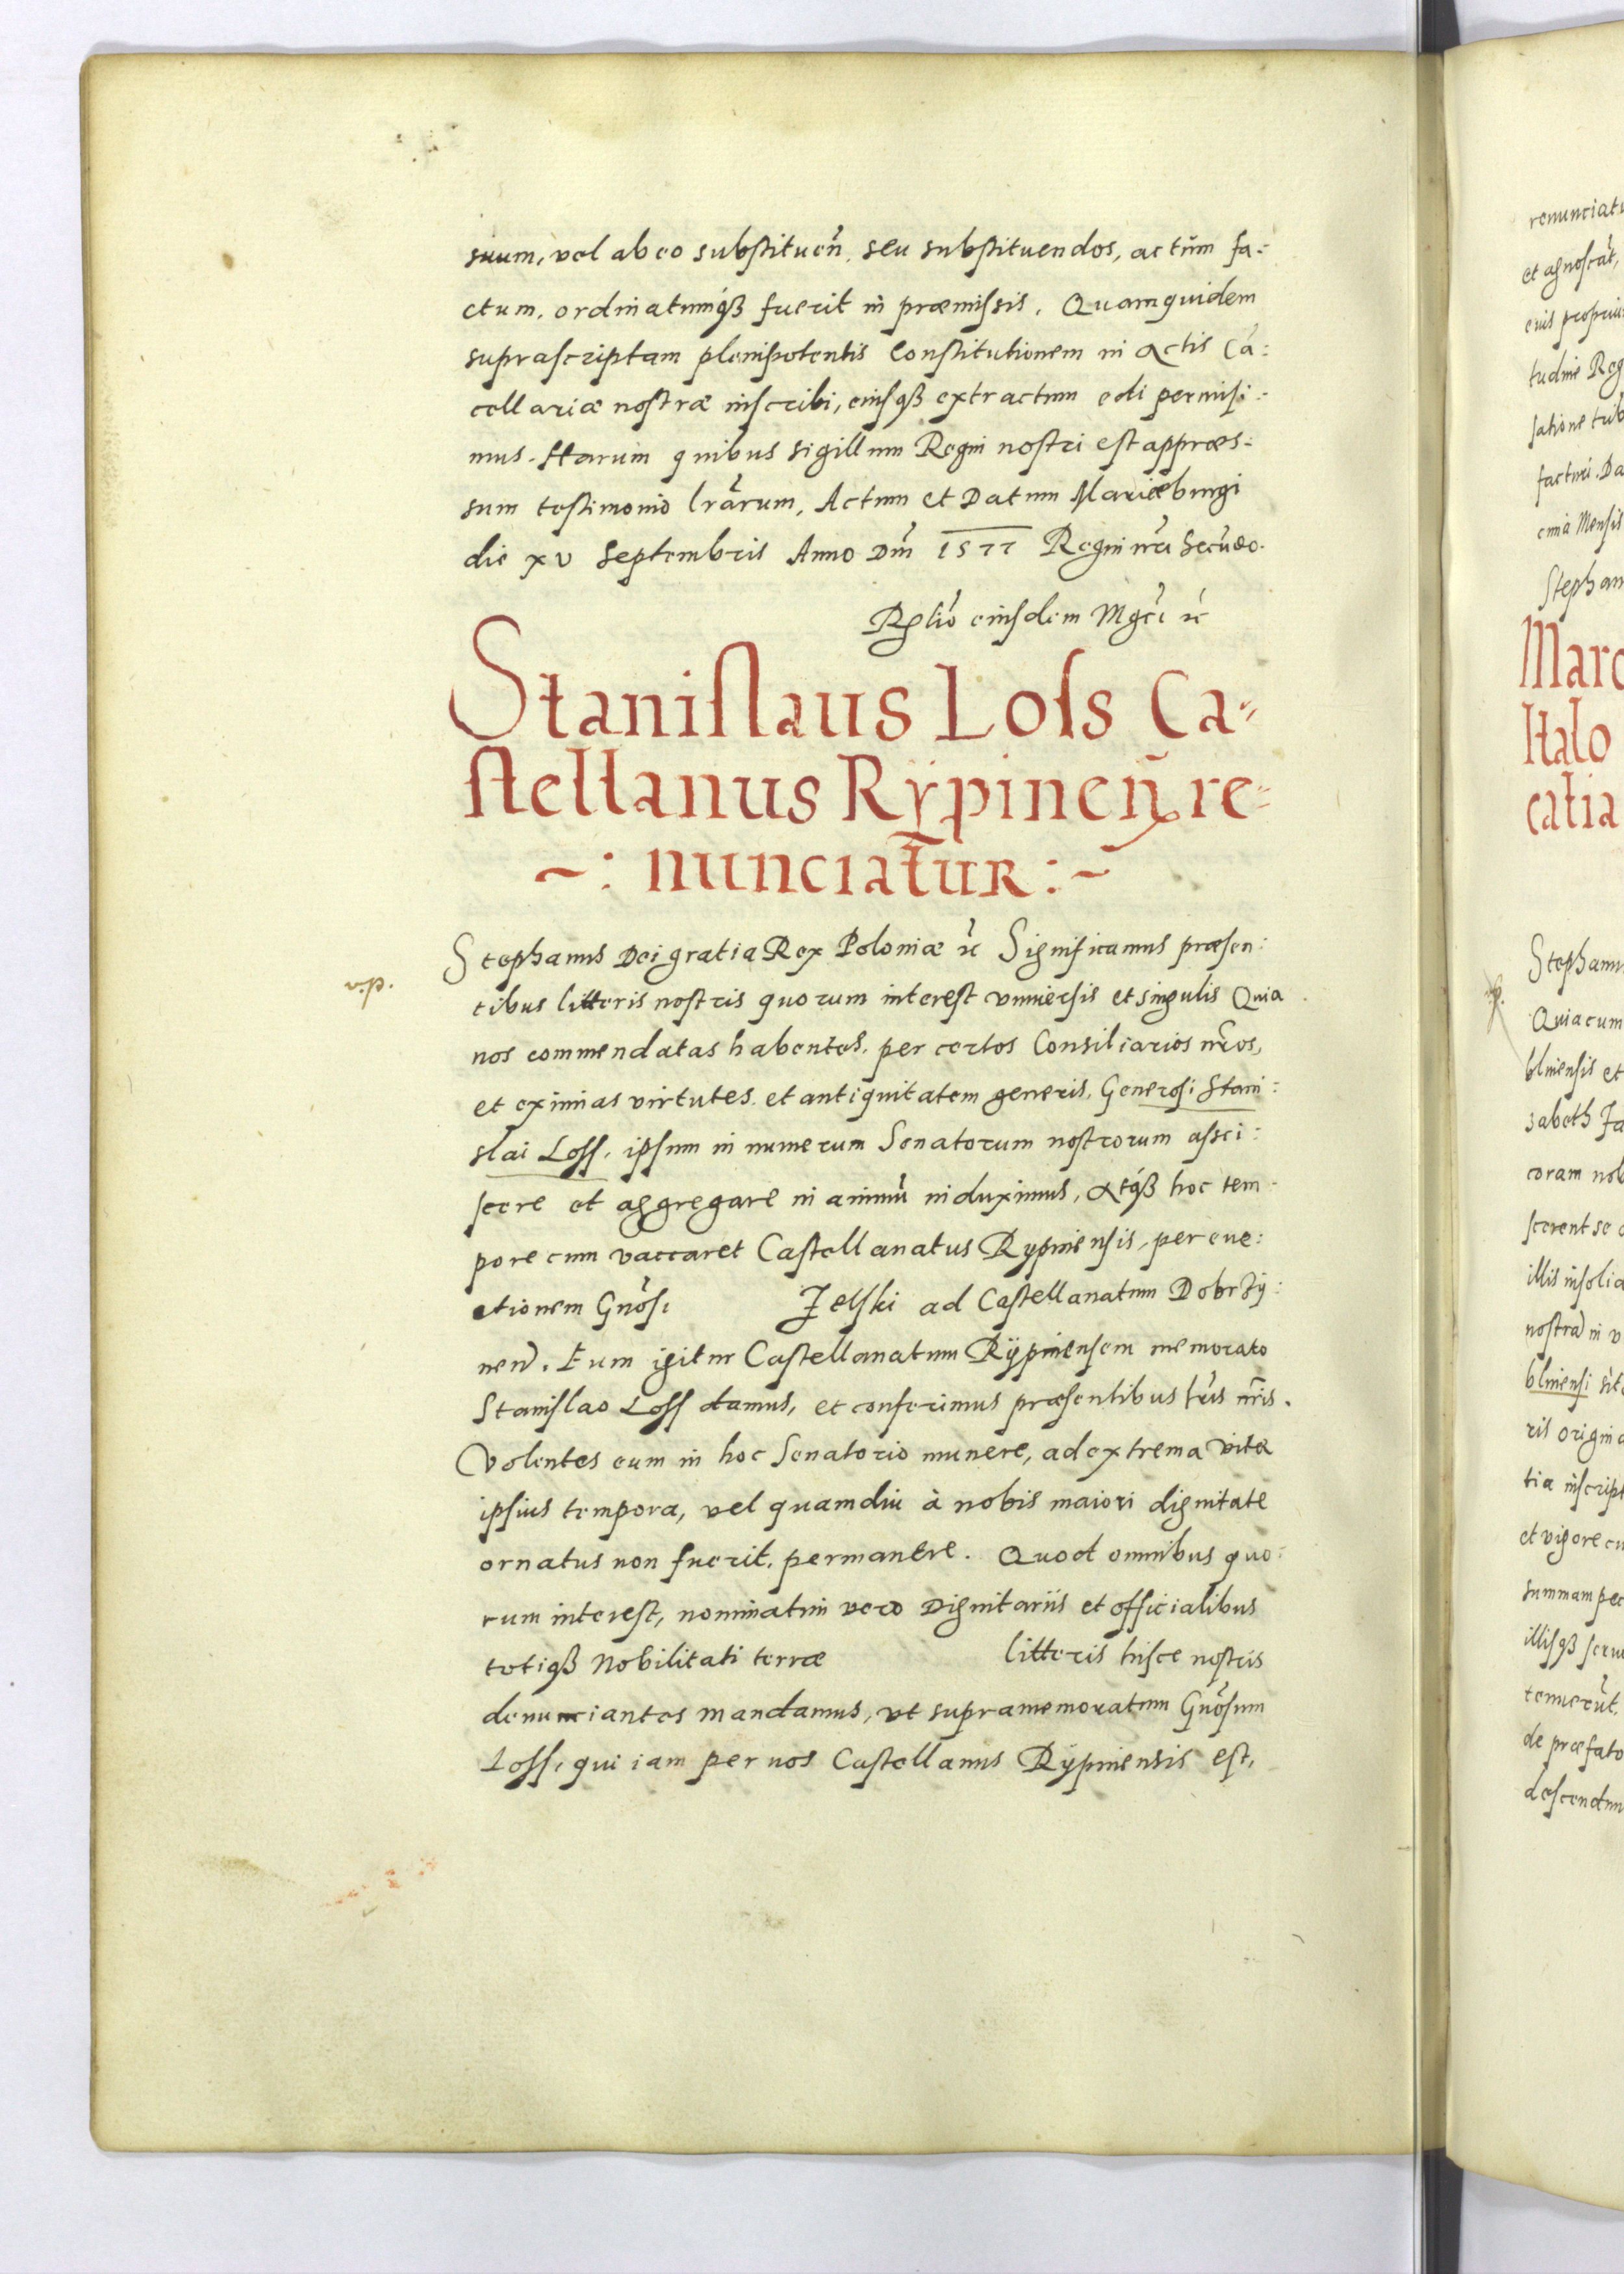 suum, vel ab eo substituen̄. seu substituendos, actūm fa-
ctum, ordinatumq́ꝫ fuerit in præmissis. Quamquidem
suprascriptam plenipotentis Constitutionem in Actis Cā:
cellariæ nostræ inscribi, eiusqꝫ extractum edi permisi:
mus. Harum quibus sigillum Regni nostri est appræs-
sum testimonio lrārum, Actum et Datum Mariæburgi
die xv Septembris Anno Dm̄ 1577 Regni nr̄i Secūdo.
Rel̄io eiusdem Mgc̄i ꝛc̄
Stanislaus Loss Ca-
stellanus Rÿpinen̄ re-
~: nunciatur :~
Stephanus Dei gratia Rex Poloniæ ꝛc̄ Significamus præsen:
tibus litteris nostris quorum interest vniuersis et singulis Quia
nos commendatas habentes. per certos Consiliarios nr̄os,
et eximias virtutes. et antiquitatem generis. Generosi Stani:
slai Loss, ipsum in numerum Senatorum nostrorum assci:
scere et aggregare in animū induximus, Atq́ꝫ hoc tem:
pore cum vaccaret Castellanatus Rypinensis, per eue:
ctionem Gnōsi Jelski ad Castellanatum Dobrzÿ:
nen̄. Eum igitur Castellanatum Rÿpinensem memorato
Stanislao Loss damus, et conferimus præsentibus lr̄is nr̄is.
Volentes eum in hoc Senatorio munere, ad extrema vitæ
ipsius tempora, vel quamdiu à nobis maiori dignitate
ornatus non fuerit, permanere. Quod omnibus quo:
rum interest, nominatim vero Dignitariis et officialibus
totiqꝫ Nobilitati terræ litteris hisce nostris
denunciantes mandamus, vt supramemoratum Gnōsum
Loss, qui iam per nos Castellanus Rÿpinensis est,
renunciatu
et agnoscāt,
eius propriu
tudine Reg
satione trib
facturi. Da
cima Mensis
Stephan
Marc
Italo
catia
Stephanu
Quia cum
blinensis et
sabeth Ja
coram nob
scerent se
illis insolid
nostrā in v
blinensi sit
ris origina
tia inscript
et vigore cu
summam pec
illisqꝫ seru
tenuerūt.
de præfato
descendun